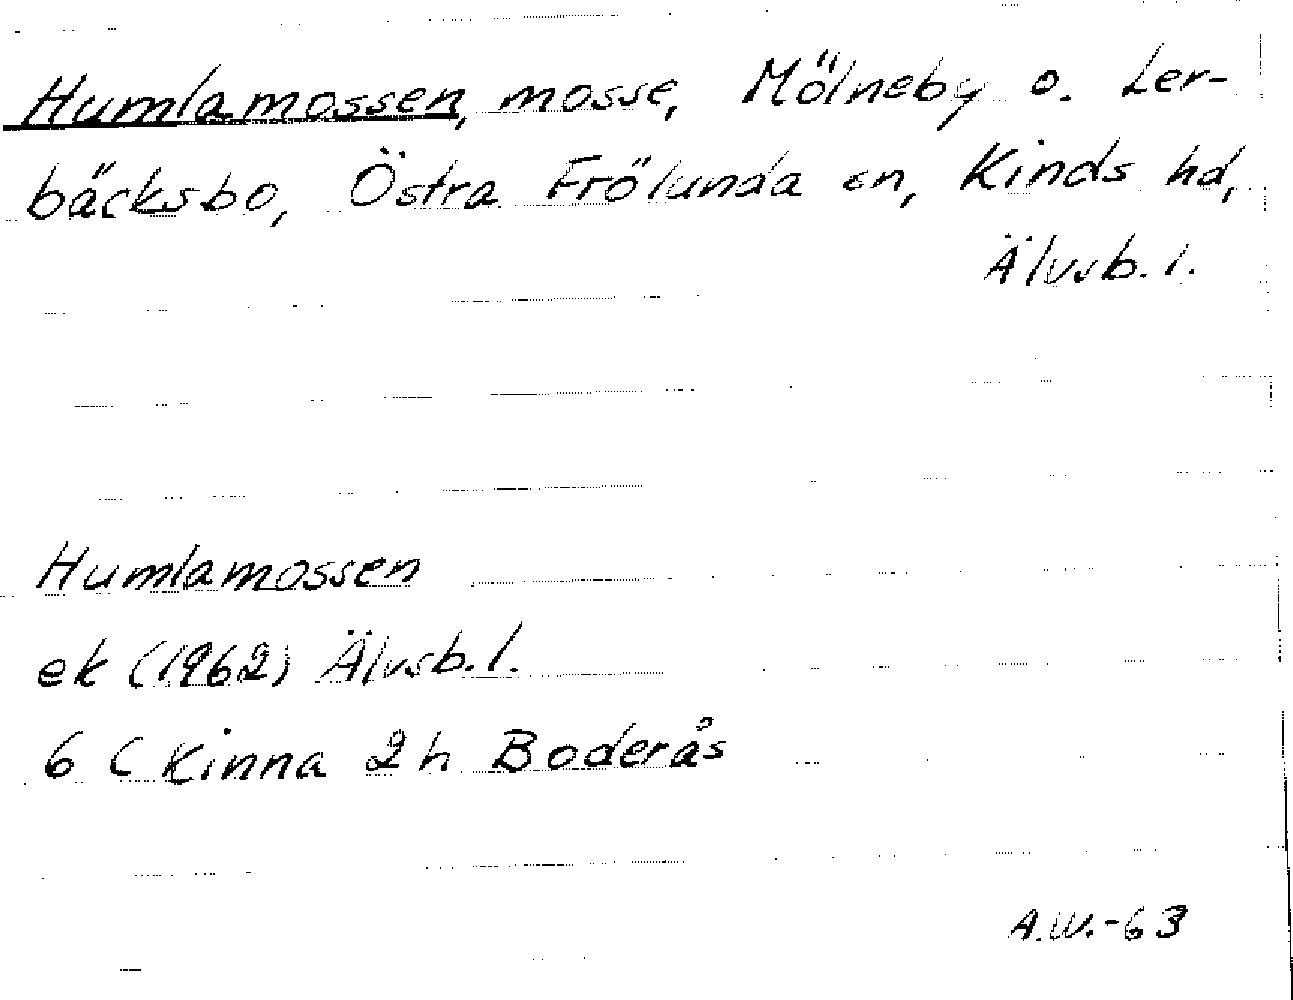 Humlamossen, mosse, Mölneby o. Ler-
bäcksbo, Östra Frölunda sn, Kinds hd,
Älvsb. l.
Humlamossen
ek (1962) Älvsb. l.
6 C Kinna 2 h Boderås
A.W.-63